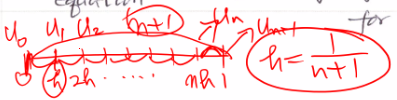 equation for
u₀ u₁ u₂ n+1 uₙ uₙ₊₁
0 h 2h ..... nh 1 h = 1/(n+1)